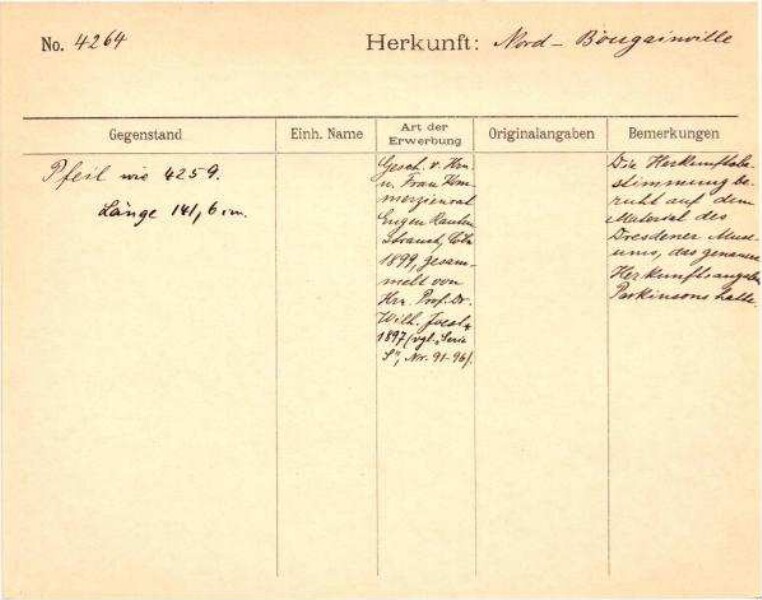 No. 4264
Herkunft: Nord - Bougainville
Gegenstand
Einh. Name
Art der
Erwerbung
Originalangaben
Bemerkungen
Pfeil wie 4259.
Länge 141,6 cm.
Gesch. v. Hrn.
u. Frau Kom-
merzienrat
Eugen Rauten
strauch, Cöln
1899, gesam-
melt von
Hrn. Prof. Dr.
Wilh. Joest
1897 (vgl. „Serie
S", Nr. 91-96).
Die Herkunftsbe-
stimmung be-
ruht auf dem
Material des
Dresdener Muse-
ums, das genaue
Herkunftsangaben
Parkinsons hatte.